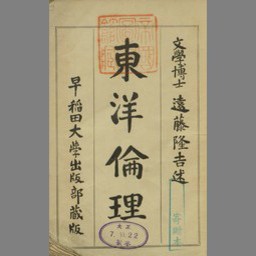 文學博士 遠藤隆吉述
東洋倫理
早稲田大學出版部蔵版
寄贈本
7.11.22